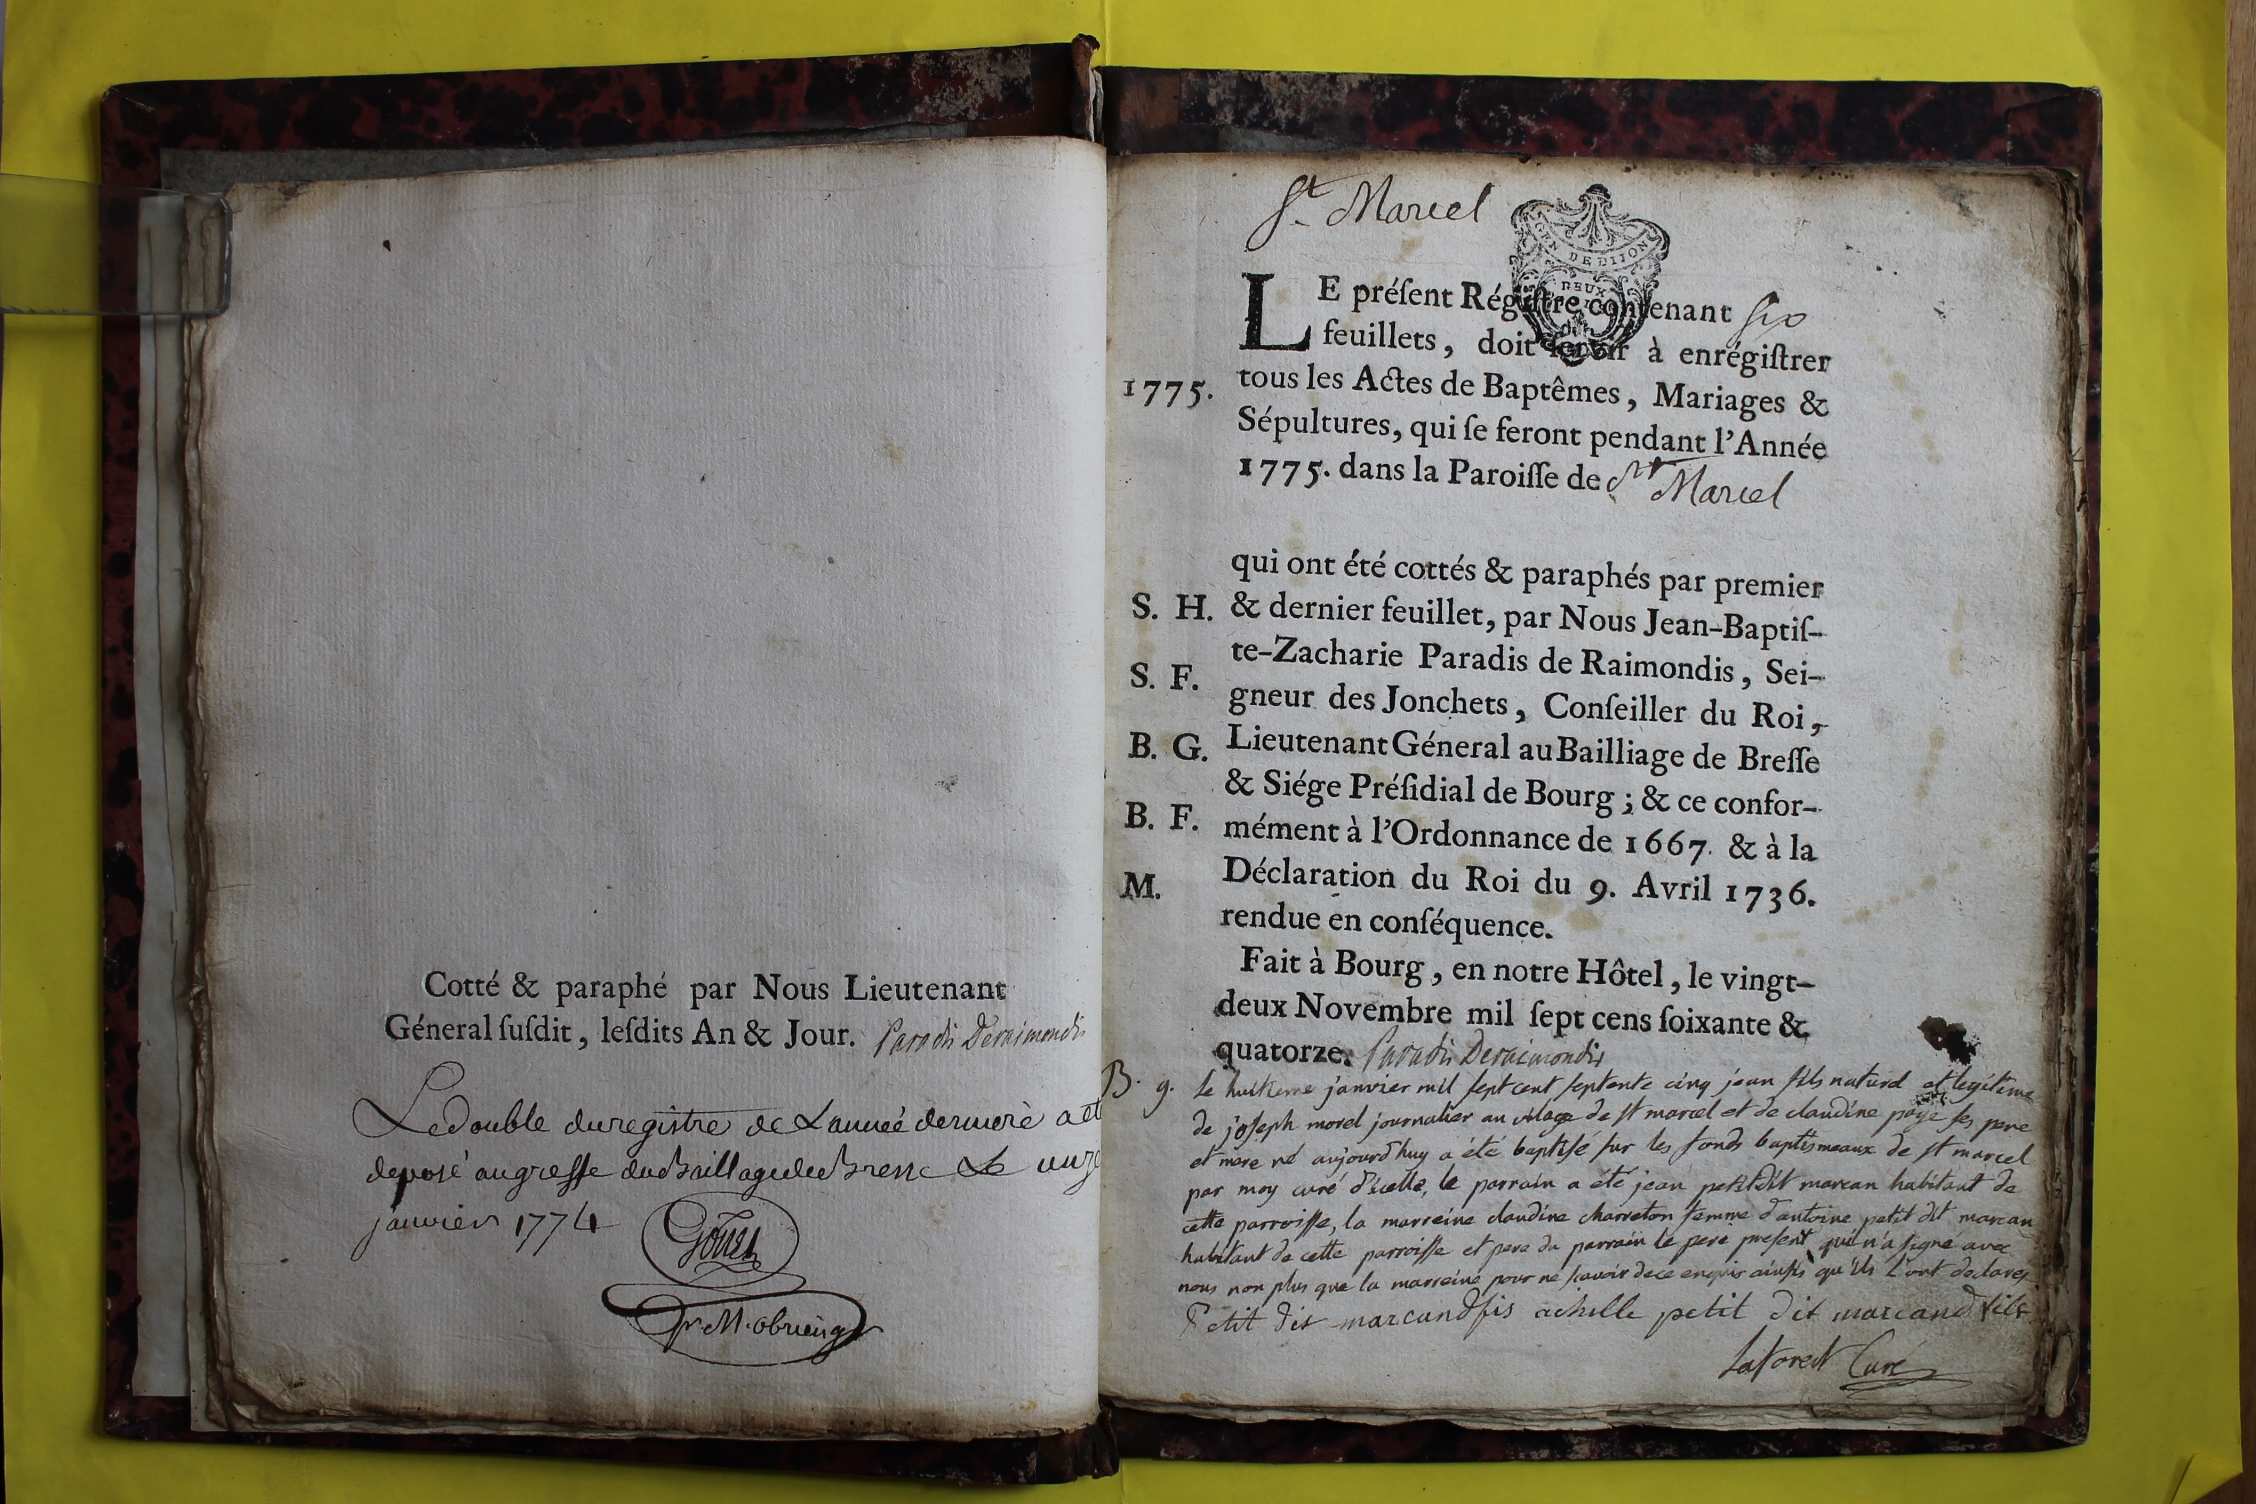 Cotté & paraphé par Nous Lieutenant
Géneral ſuſdit, leſdits An & Jour. Paradis Deraimondis
Le double du registre de L'année derniere a et
deposé au greffe du Baillage de Bresse Le
janvier 1774
St Marcel
GEN DE DIJON
DEUX
LE préſent Régiſtre contenant six
feuillets, doit ſervir à enrégiſtrer
1775. tous les Actes de Baptêmes, Mariages &
Sépultures, qui ſe feront pendant l'Année
1775. dans la Paroiſſe de St Marcel
qui ont été cottés & paraphés par premier
S. H. & dernier feuillet, par Nous Jean-Baptiſ-
te-Zacharie Paradis de Raimondis, Sei-
S. F. gneur des Jonchets, Conſeiller du Roi,
B. G. Lieutenant Géneral au Bailliage de Breſſe
& Siége Préſidial de Bourg ; & ce confor-
B. F. mément à l'Ordonnance de 1667. & à la
M. Déclaration du Roi du 9. Avril 1736.
rendue en conſéquence.
Fait à Bourg, en notre Hôtel, le vingt-
deux Novembre mil ſept cens ſoixante &
quatorze. Paradis Deraimondis
B. g. le huitieme janvier mil sept cent septente cinq jean fils naturel et legitime
de joseph morel journalier au vilage de st marcel et de claudine paye ses pere
et mere né aujourd'huy a été baptisé sur les fonds baptismeaux de st marcel
par moy curé d'icelle, le parrain a été jean petit dit marcan habitant de
cette parroisse, la marreine claudine charreton femme d'antoine petit dit marcan
habitant de cette parroisse et pere du parrain le pere present qui n'a signé avec
nous non plus que la marreine pour ne sçavoir de ce enquis ainsi qu'ils l'ont declarez
Petit dit marcand fis achille petit dit marcand fils
Laforest Curé